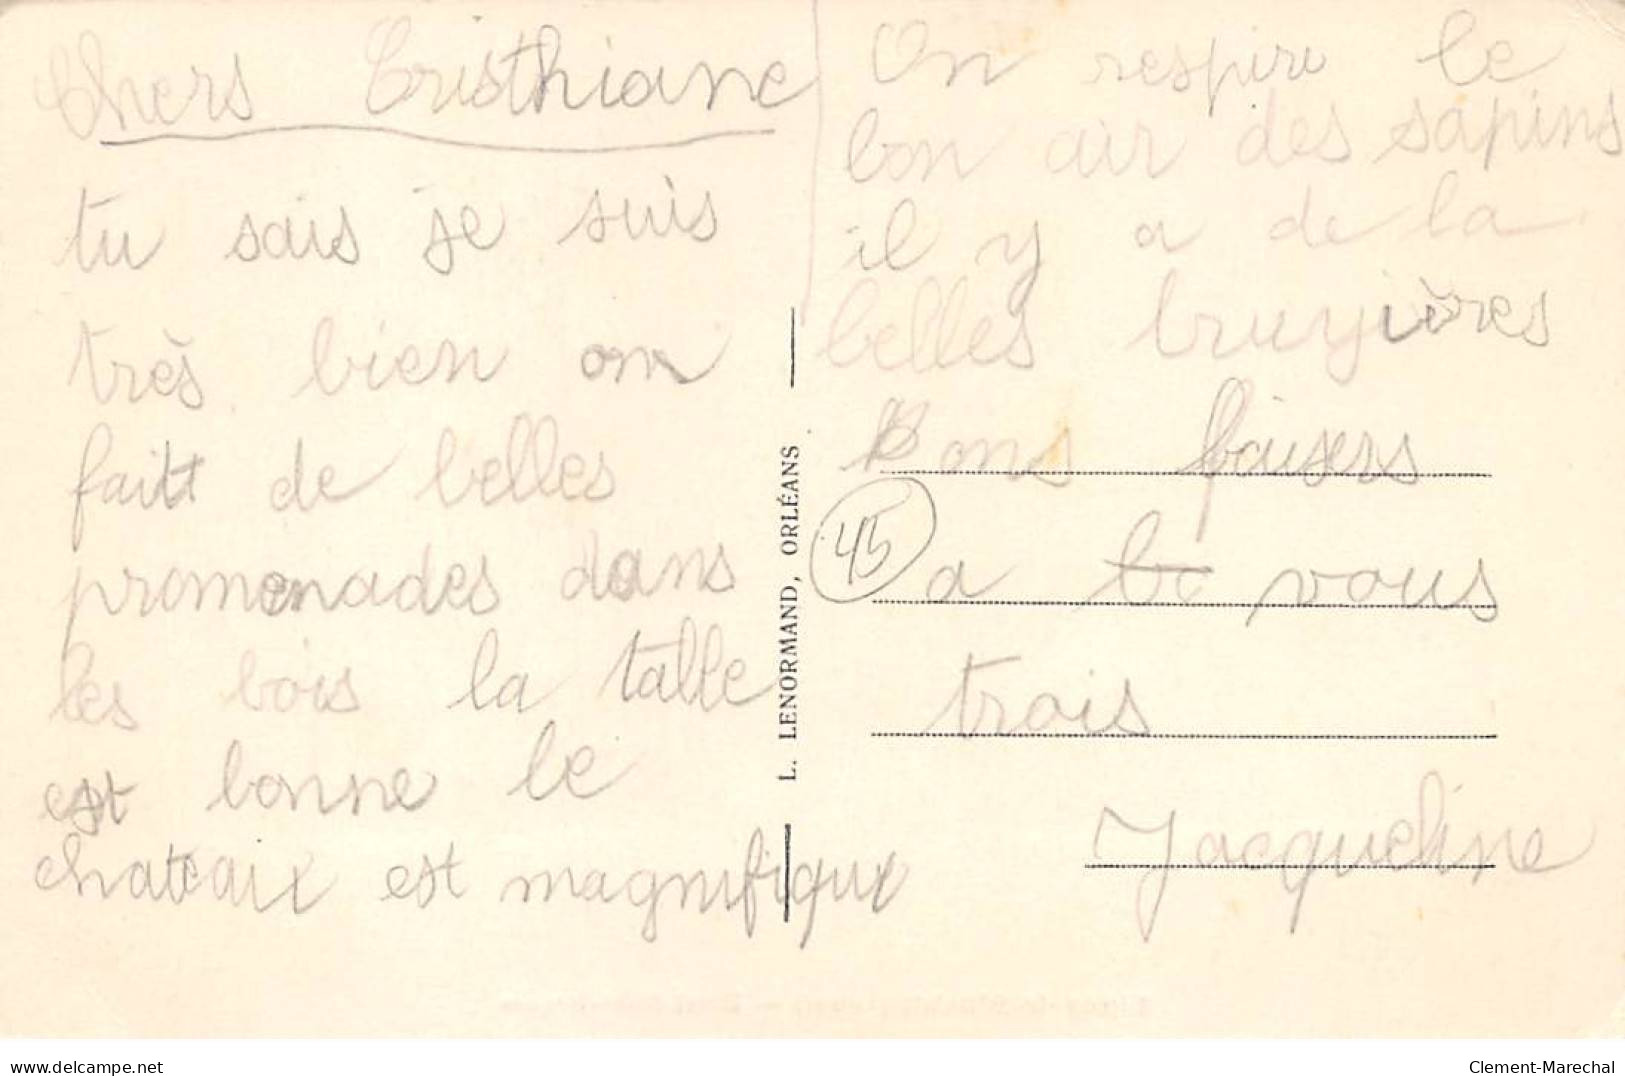 Chers Cristhiane
tu sais je suis
très bien on
faitt de belles
promenades dans
les bois la table
est bonne le
chateaux est magnifique
On respire le
bon air des sapins
il y a de la
belles bruyières
Bons baisers
a vous
trois
Jacqueline
45
L. LENORMAND, ORLÉANS
www.delcampe.net
Clement-Marechal